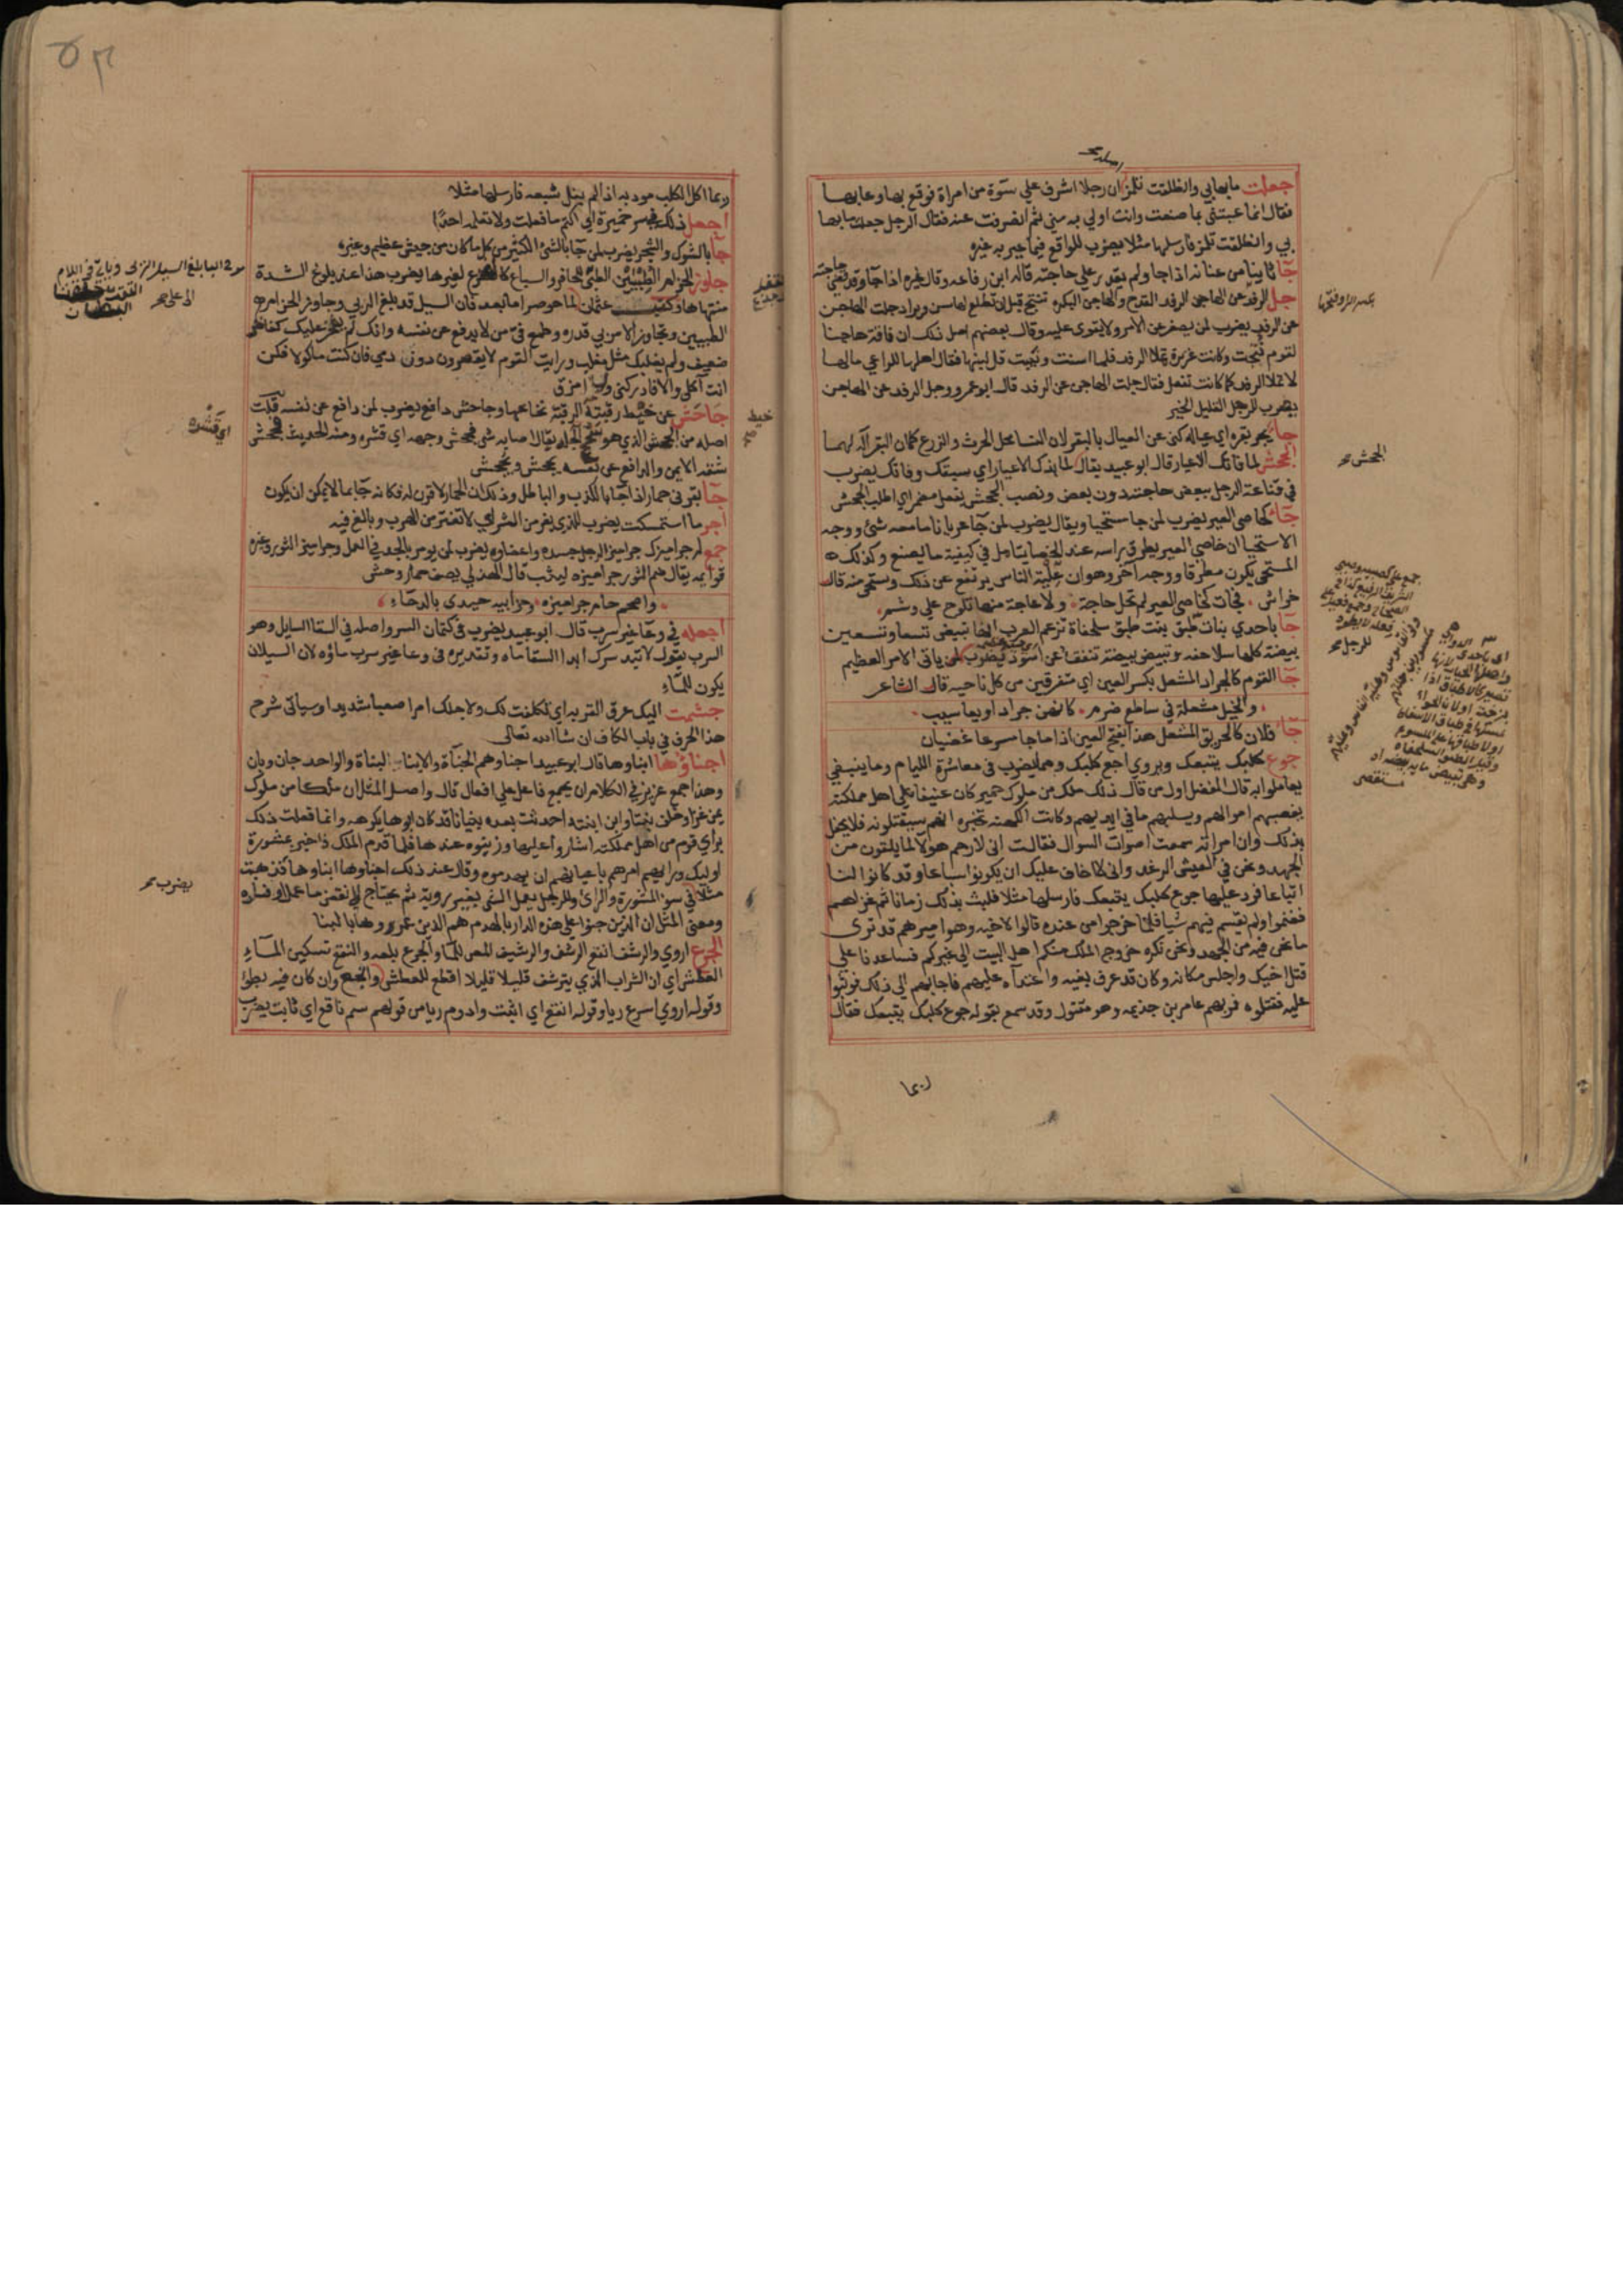 جعلت ما بها بي وانطلقت تلمز ان رجلا اشرف على سوءة من امراة فوقع بها وعابها
فقال انما عبتني بما صنعت وانت اولى به مني ثم انصرفت عنه فقال الرجل جعلت ما بها
بي وانطلقت تلمز فارسلها مثلا يضرب للواقع فيما عير به غيره
جآ ثانيا من عنانه اذا جا ولم يقدر على حاجته قاله ابن رفاعه وقال غيره اذا جا وقد قضى حاجته
جل الرفد عن الهاجن الرفد القدح والهاجن البكره تنتج قبل ان تطلع لها سن ويراد جلت الهاجن
عن الرفد يضرب لمن يصغر عن الامر ولا يقوى عليه وقال بعضهم اصل ذلك ان ناقة هاجنا
لقوم نتجت وكانت غزيرة تملا الرفد فلما اسنت ونيبت قل لبنها فقال اهلها للراعي مالها
لا تملا الرفد كما كانت تفعل فقال جلت الهاجن عن الرفد قال ابو عمرو وجل الرفد عن الهاجن
يضرب للرجل القليل الخير
جآ يجر بقره اي عياله كنى عن العيال بالبقر لان النسا محل الحرث والزرع كما ان البقر آلة لهما
الجحش لما فاتك الاعيار قال ابو عبيد يقال لما بذك الاعيار اي سبقك وفاتك يضرب
في قناعة الرجل ببعض حاجته دون بعض ونصب الجحش بفعل مضمر اي اطلب الجحش
جآ كخاصي العير يضرب لمن جا مستحيا ويقال يضرب لمن جآ عريانا ما معه شئ ووجه
الاستحيا ان خاصي العير يطرق براسه عند الخصا يتامل في كيفية ما يصنع وكذلك
المستحي يكون مطرقا ووجه آخر وهو ان علية الناس يرتفع عن ذلك ويستحي منه قال
خراش فجات كخاصي العير لم تحل حاجة ولا عاجة منها تلوح على وشم
جآ باحدي بنات طبق بنت طبق سلحفاة تزعم العرب انها تبيض تسعا وتسعين
بيضة كلها سلاحف وتبيض بيضة تنقف عن اسود يضرب لمن ياتى الامر العظيم
جآ القوم كالجراد المشعل بكسر العين اي متفرقين من كل ناحيه قال الشاعر
والخيل مشعلة في ساطع ضرم كانهن جراد او يعاسيب
جآ فلان كالحريق المشعل هذا بفتح العين اذا ما جا مسرعا غضبان
جوع كلبك يتبعك ويروى اجع كلبك وهما يضرب في معاشرة اللئام وما ينبغي
يعاملوا به قال المفضل اول من قال ذلك ملك من ملوك حمير كان عنيفا على اهل مملكته
يغصبهم اموالهم ويسلبهم ما في ايديهم وكانت الكهنه تخبره انهم سيقتلونه فلا يحفل
بذلك وان امراته سمعت اصوات السوال فقالت اني لارحم هولآ لما يلقون من
الجهد ونحن في العيش الرغد واني لاخاف عليك ان يكونوا سباعا وقد كانوا لنا
اتباعا فرد عليها جوع كلبك يتبعك فارسلها مثلا فلبث بذلك زمانا ثم غزا بهم
فغنموا ولم يقسم فيهم شيا فلما خرجوا من عنده قالوا لاخيه وهو اميرهم قد ترى
ما نحن فيه من الجهد ونحن نكره خروج الملك منكم اهل البيت الى غيركم فساعدنا على
قتل اخيك واجلس مكانه وكان قد عرف بغيه واعتدآه عليهم فاجابهم الى ذلك فوثبوا
عليه فقتلوه فمر بهم عامر بن جذيمه وهو مقتول وقد سمع بقوله جوع كلبك يتبعك فقال
ربما
الجحش صح
ربما اكل الكلب مودبه اذا لم ينل شبعه فارسلها مثلا
اجعل ذلك في سر خميرة اي اكتم ما فعلت ولا تعلمه احدا
جآ بالشوك والشجر يضرب لمن جآ بالشئ الكثير من كل ما كان من جيش عظيم وغيره
جاوز الحزام الطبيين الطبى للحافر والسباع كالضرع لغيرها يضرب هذا عند بلوغ الشدة
منتهاها وكتب عثمان لما حوصر اما بعد فان السيل قد بلغ الزبى وجاوز الحزام
الطبيين وتجاوز الامر بي قدره وطمع في من لا يدفع عن نفسه وانك لم يفخر عليك كفاخر
ضعيف ولم يغلبك مثل مغلب ورايت القوم لا يقصرون دون دمي فان كنت ماكولا فكن
انت آكلي والا فادركني ولما امزق
جاحش عن خيط رقبته الرقبة نخاعها وجاحش دافع يضرب لمن دافع عن نفسه قلت
اصله من الجحش الذي هو سحج الجلد يقال اصابه شى فجحش وجهه اي قشره ومنه الحديث فجحش
شقه الايمن والدافع عن نفسه يجحش ويجحش
جآ بقرنى حمار اذا جآ بالكذب والباطل وذلك ان الحمار لا قرن له فكانه جآ بما لا يمكن ان يكون
اجر ما استمسكت يضرب للذي يفر من الشر اي لا تفتر من الهرب وبالغ فيه
جمع له جراميزك جراميز الرجل جسده واعضاوه يضرب لمن يومر بالجد في العمل وجراميز الثور وغيره
قوايمه يقال ضم الثور جراميزه ليثب قال الهذلي يصف حمار وحش
واصحم حام جراميزه وحزابية حيدى بالدحآء
اجعله في وعآ غير سرب قال ابو عبيد يضرب في كتمان السر واصله في السقا السايل وهو
السرب يقول لا تبد سرك ابدا السقا ماه وتقديره في وعا غير سرب ماؤه لان السيلان
يكون للمآء
جشمت اليك عرق القربه اي تكلفت لك ولاجلك امرا صعبا شديدا وسياتى شرح
هذا الحرف في باب الكاف ان شا الله تعالى
اجناوها ابناوها قال ابو عبيد اجناوهم الجناة والابنا البناة والواحد جان وبان
وهذا جمع عزيز في الكلام ان يجمع فاعل على افعال قال واصل المثل ان ملكا من ملوك
يمن غزا وخلف بنتا وان ابنته احدثت بعده بنيانا قد كان ابوها يكرهه وانما فعلت ذلك
براي قوم من اهل مملكته اشاروا عليها وزينوه عندها فلما قدم الملك واخبر بمشورة
اوليك ورايهم امرهم باعيانهم ان يهدموه وقال عند ذلك اجناوها ابناوها فذهبت
مثلا في سو المشورة والراى وللرجل يعمل الشى بغير روية ثم يحتاج الى نقض ما عمل وافساده
ومعنى المثل ان الذين جنوا على هذه الدار بالهدم هم الذين عمروها بالبنا
الجرع اروي والرشف انقع الرشف والرشيف المص للما والجرع بلعه والنقع تسكين المآء
العطش اي ان الشراب الذي يترشف قليلا قليلا اقطع للعطش وانجع وان كان فيه بطوا
وقوله اروي اسرع ريا وقوله انقع اي اثبت وادوم ريا من قولهم سم ناقع اي ثابت يضرب
خيط صح
اي قشره
يضرب صح